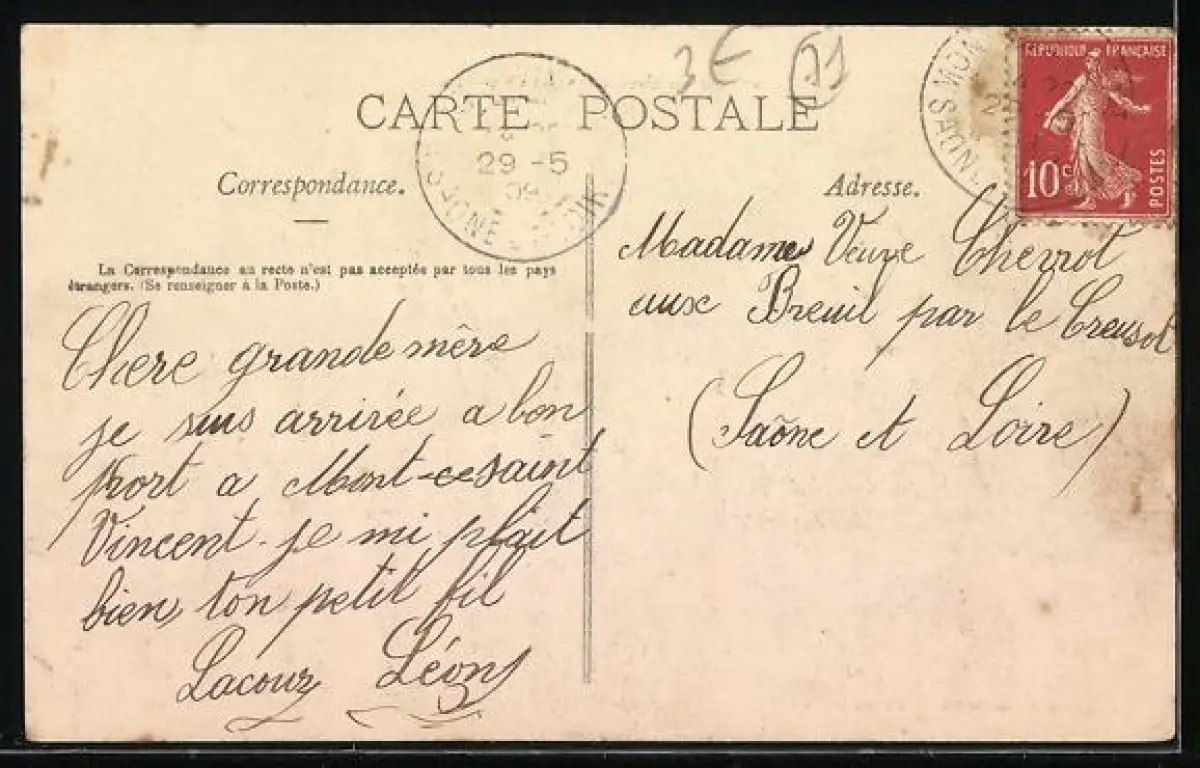 3€ 71
CARTE POSTALE
29 -5
09
SAÔNE
RÉPUBLIQUE FRANÇAISE
10c
POSTES
Correspondance.
Adresse.
La Correspondance au recto n'est pas acceptée par tous les pays
étrangers. (Se renseigner à la Poste.)
Chere grande mère
je suis arrivée a bon
port a Mont-ce saint
Vincent. je mi plait
bien ton petit fil
Lacour Léon
Madame Veuve Chevrot
aux Breuil par le Creusot
(Saône et Loire)